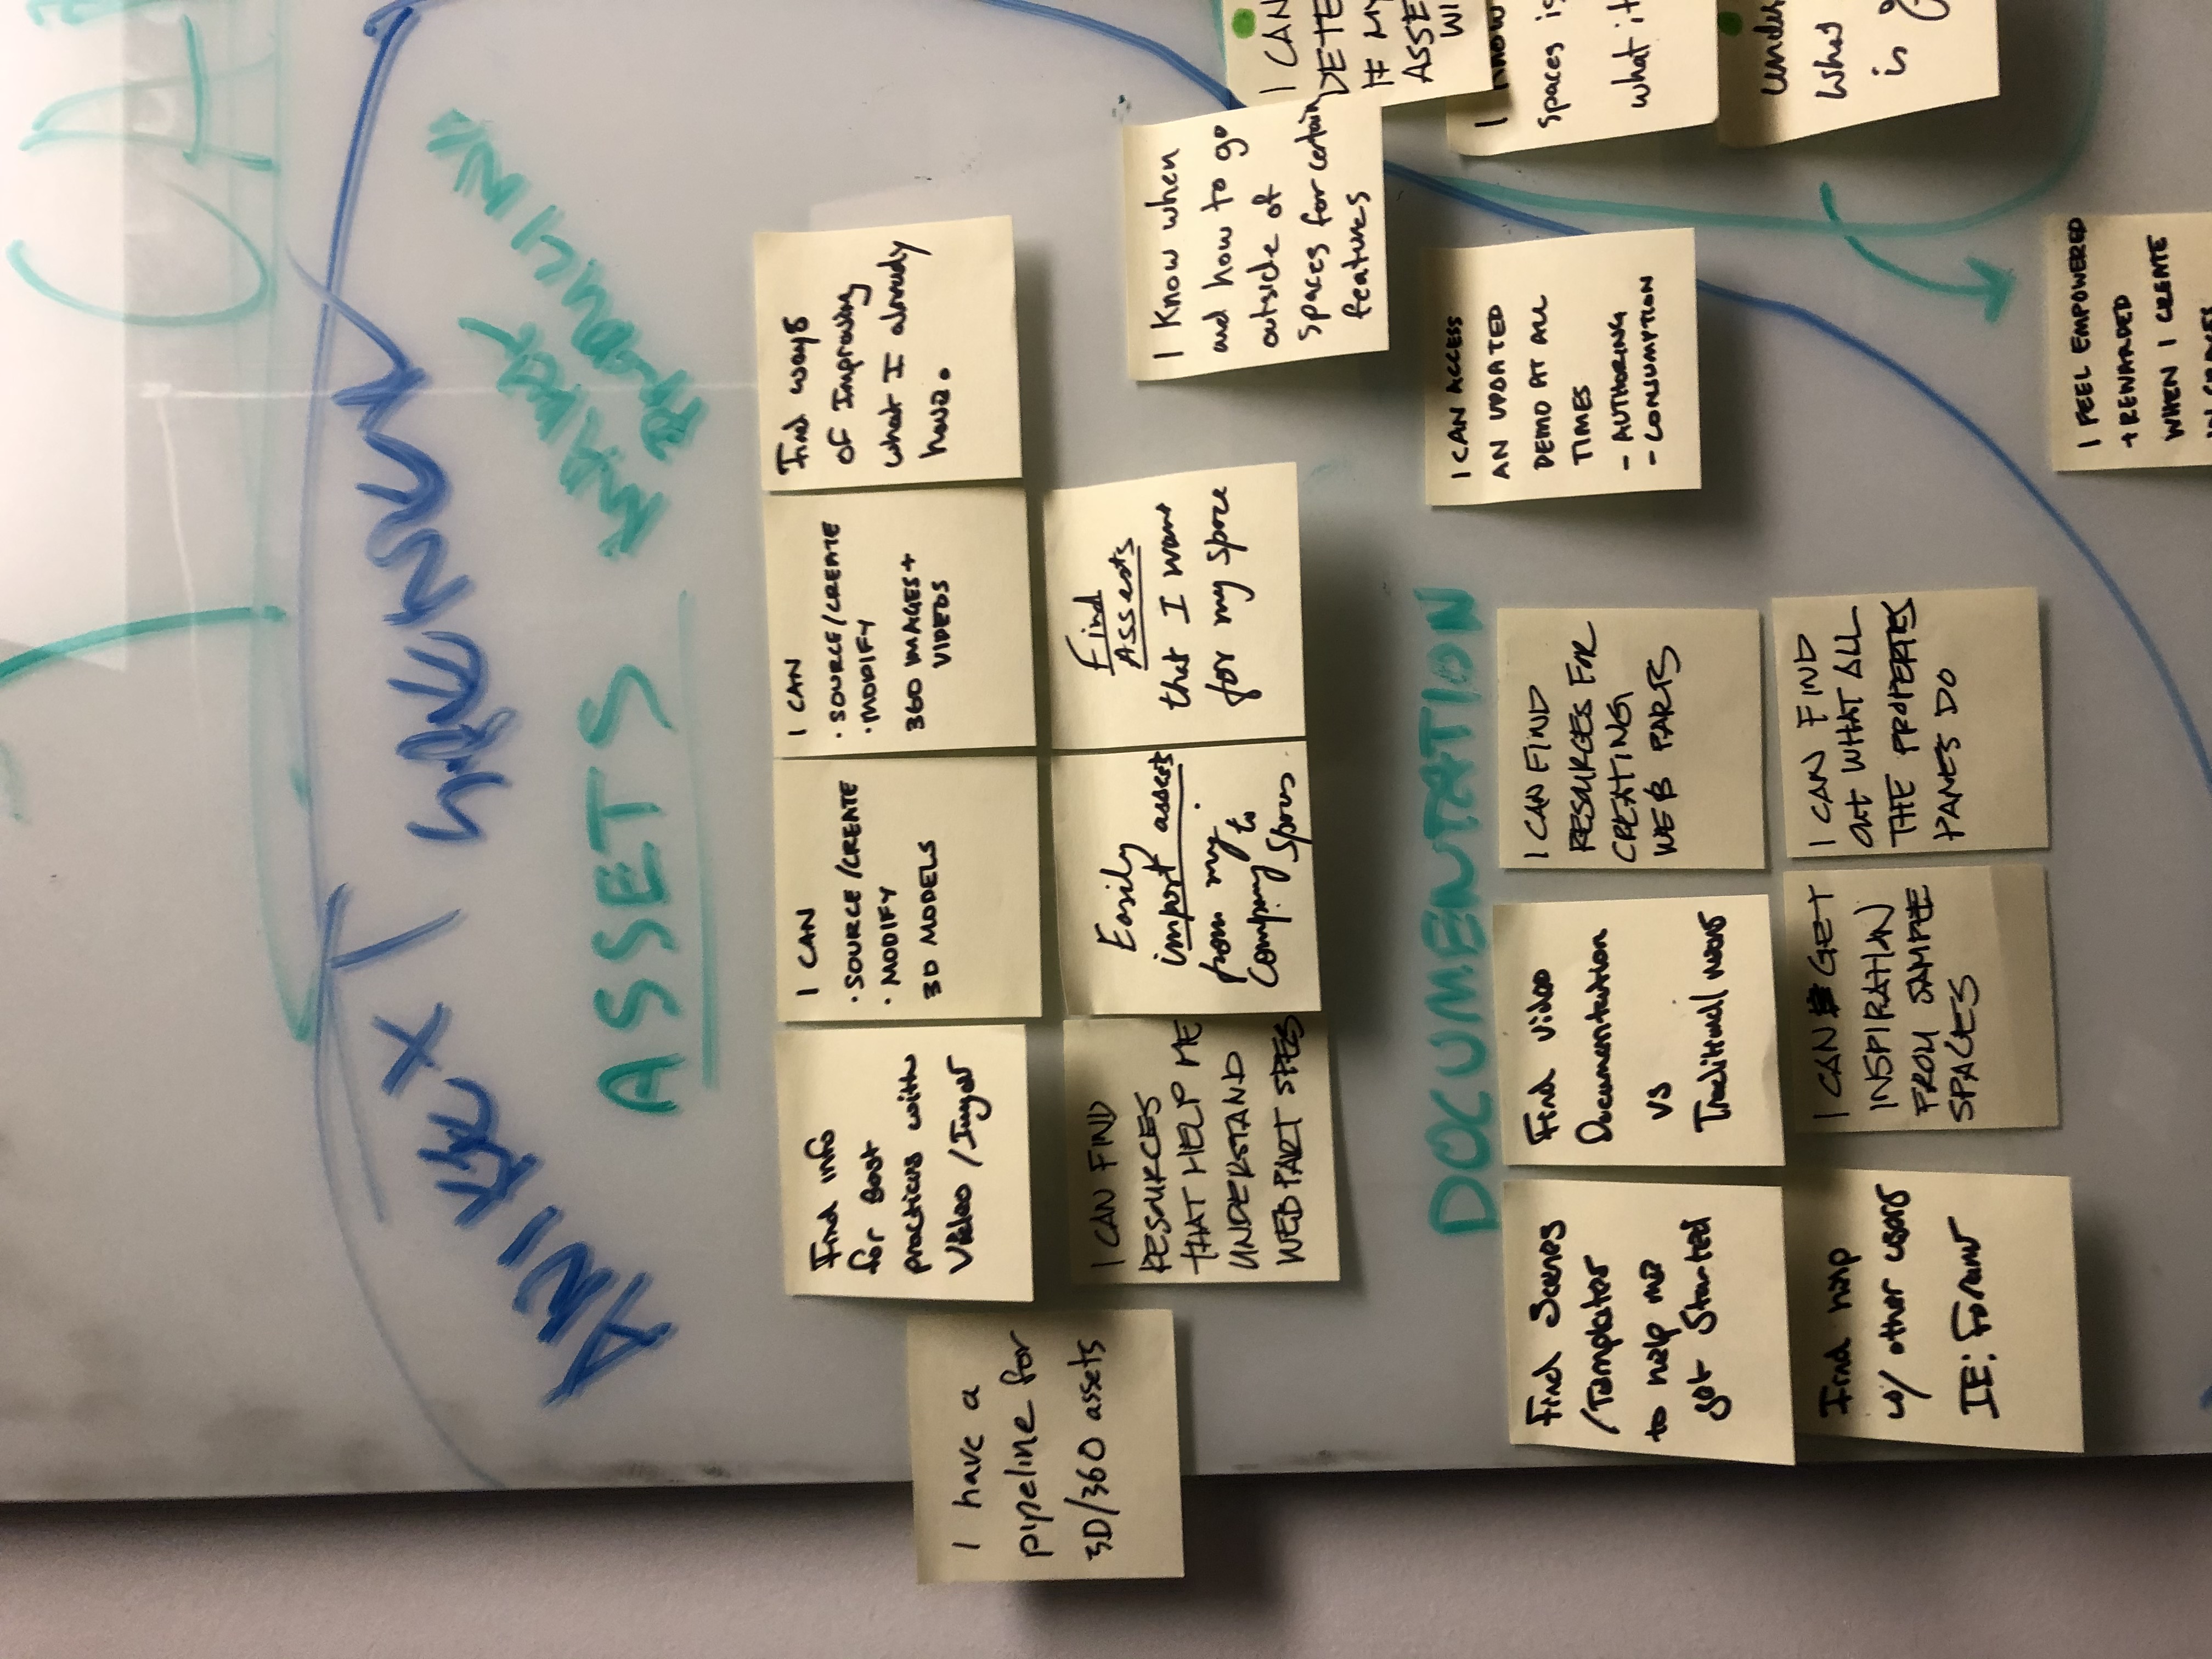 CA
ANIKET
SPENCER
ASSETS
MAKE
Find info
for Best
practices with
Video / Images
I CAN
· SOURCE / CREATE
· MODIFY
3D MODELS
I CAN
· SOURCE / CREATE
· MODIFY
360 IMAGES +
VIDEOS
Find ways
of Improving
what I already
have.
I have a
pipeline for
3D/360 assets
I CAN FIND
RESOURCES
THAT HELP ME
UNDERSTAND
WEB PART SPECS
Easily
import assets
from my
company to
Spaces
Find
Assests
that I want
for my space
I Know when
and how to go
outside of
spaces for certain
features
I CAN
DETE
IF MY
ASSE
WI
DOCUMENTATION
Find Scenes
/Templates
to help me
get Started
Find video
Documentation
vs
Traditional/
I CAN FIND
RESOURCES FOR
CREATING
WEB PARTS
I CAN ACCESS
AN UPDATED
DEMO AT ALL
TIMES
- AUTHORING
- CONSUMPTION
I know
spaces is
what it
Find help
w/ other users
IE: Forums
I CAN GET
INSPIRATION
FROM SAMPLE
SPACES
I CAN FIND
out WHAT ALL
THE PROPERTIES
PANES DO
unders
What
is
I FEEL EMPOWERED
+ REWARDED
WHEN I CREATE
IN SPACES